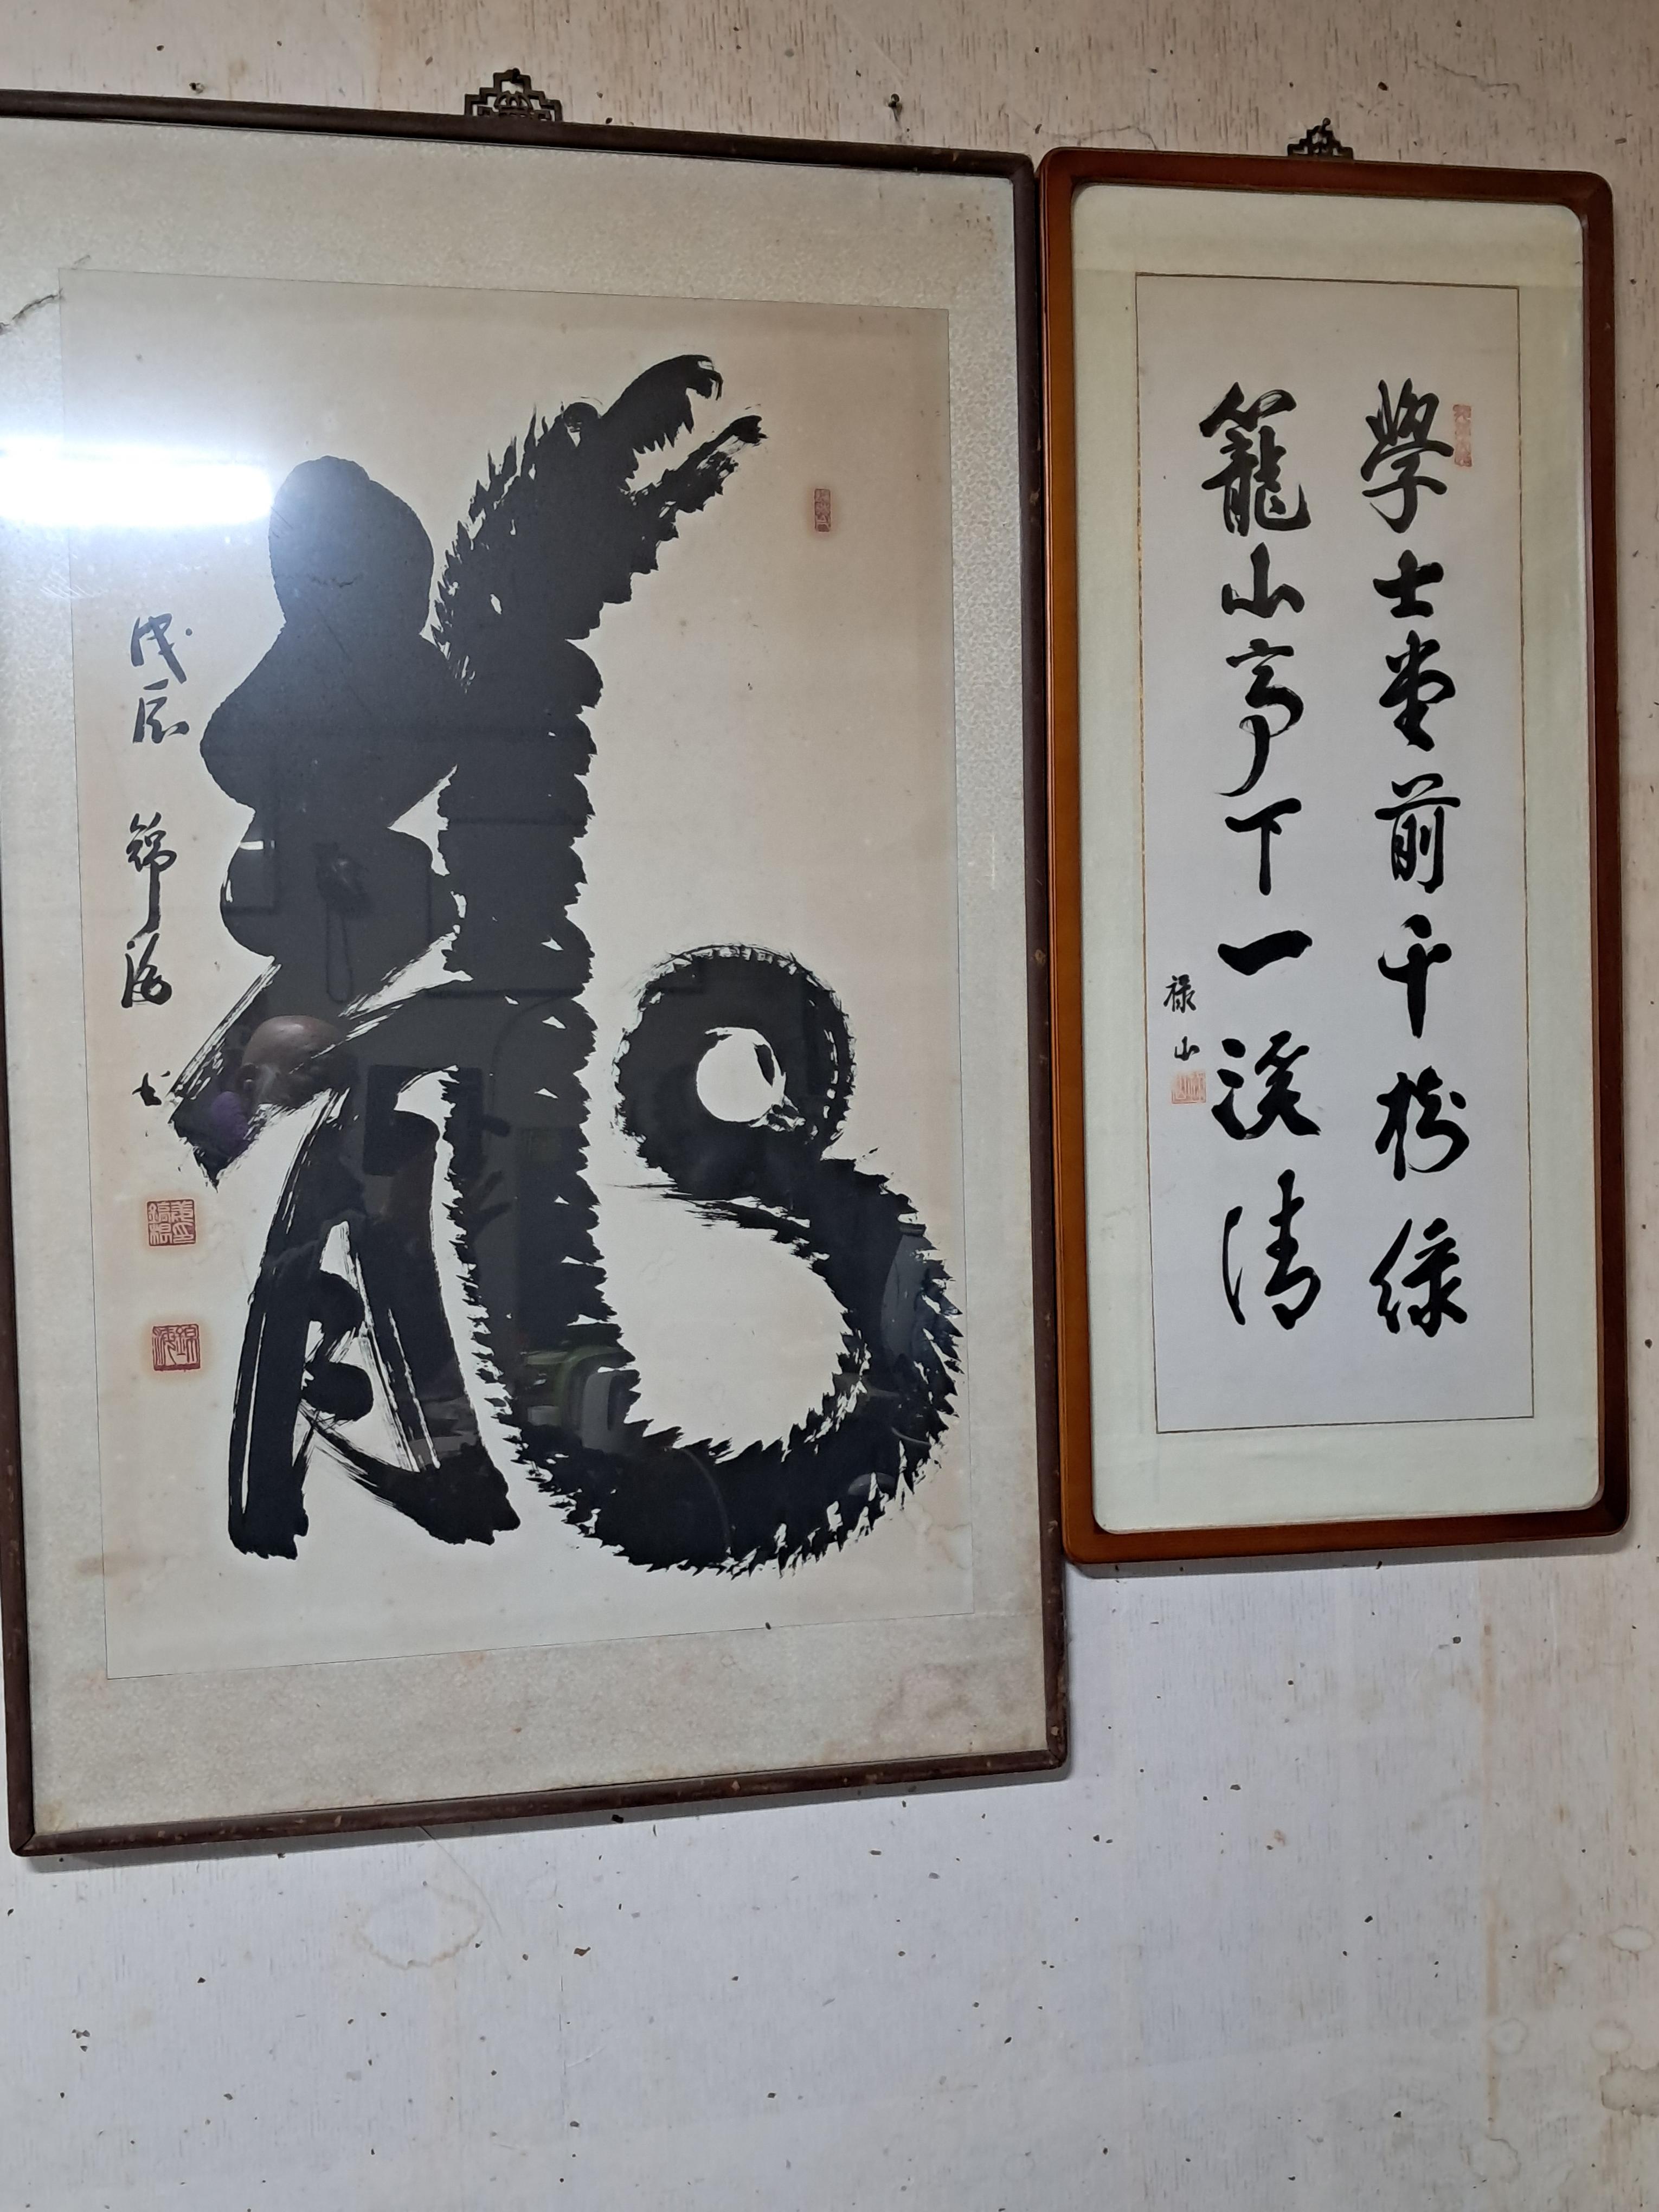 學士堂前千樹綠
籠山亭下一溪清
禄山
龍
戊辰 錦海 書